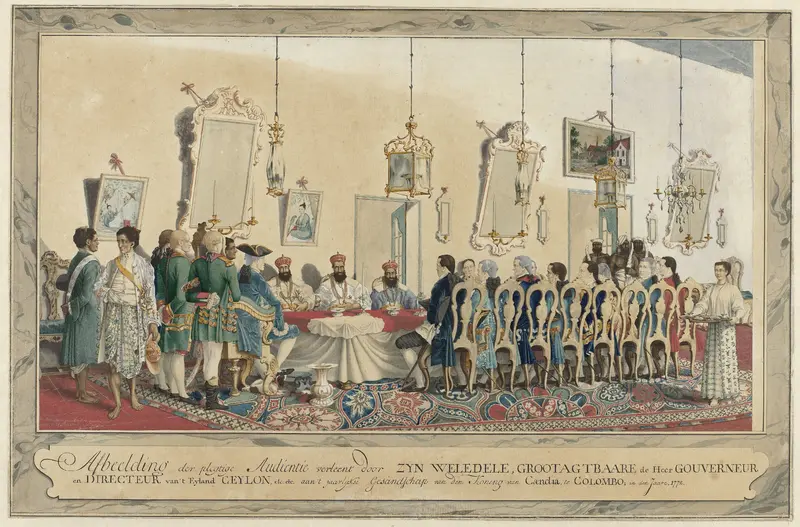 Afbeelding der plegtige Audientie verleent door ZYN WELEDELE, GROOTAGTBAARE de Heer GOUVERNEUR
en DIRECTEUR van't Eyland CEYLON, &c. &c. aan't jaarlykse Gesandschap van den Koning van Candia, te COLOMBO, in den Jaare, 1772.